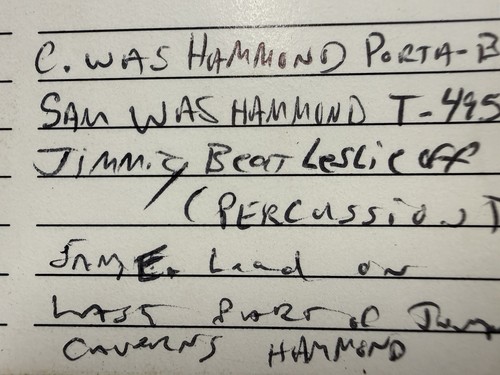 C. WAS HAMMOND PORTA-B
SAM WAS HAMMOND T-495
JIMMIZ BEAT LESLIE OFF
(PERCUSSION)
SAME. Lead on
LAST PART OF
CAVERNS HAMMOND